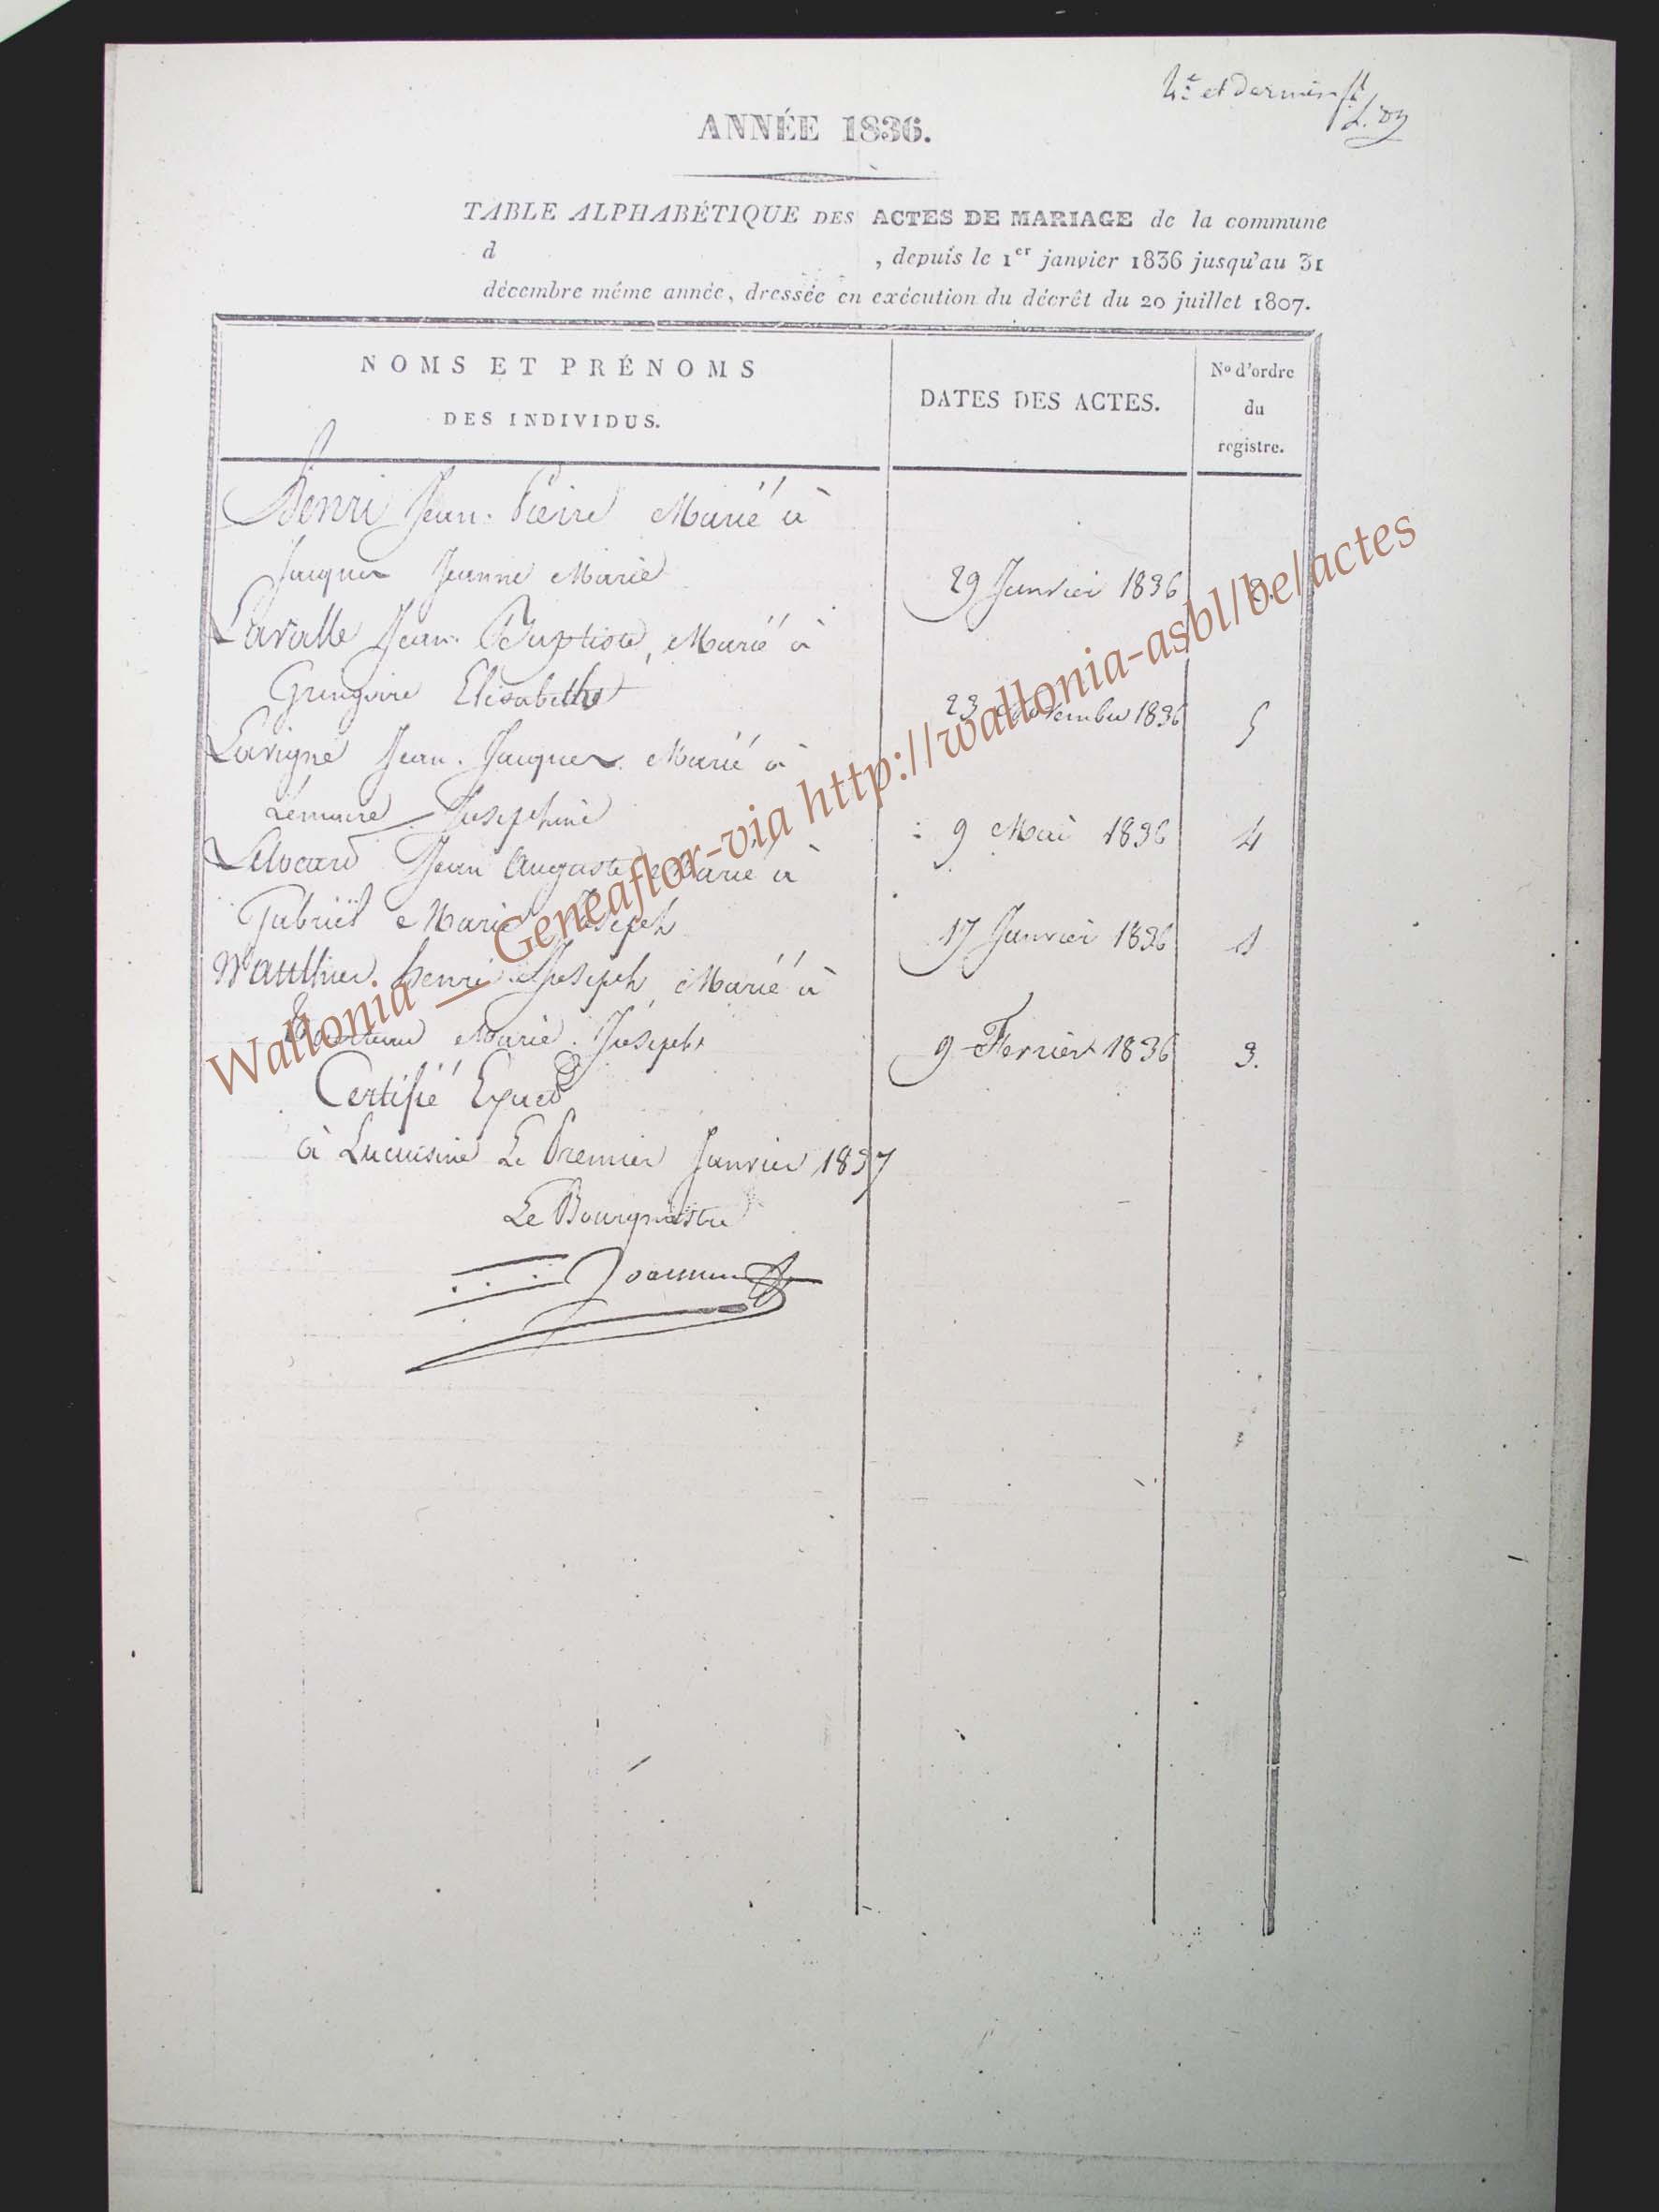 4e et dernier ft
ANNÉE 1836.
TABLE ALPHABÉTIQUE DES ACTES DE MARIAGE de la commune
d , depuis le 1er janvier 1836 jusqu'au 31
décembre même année, dressée en exécution du décrêt du 20 juillet 1807.
NOMS ET PRÉNOMS
DES INDIVIDUS.
DATES DES ACTES.
No d'ordre
du
registre.
henri Jean-Pierre Marié à
Jacques Jeanne Marie 29 Janvier 1836 2.
Lavalle Jean-Baptiste, Marié à
Gringoire Elisabeth 23 Novembre 1836 5
Lavigne Jean-Jacques Marié à
Lemaire Josephine 9 Mai 1836 4
Jean Auguste Marié à
Gabriel Marie Joseph 17 Janvier 1836 1
Watthier henri Joseph, Marié à
Marie Joseph 9 Fevrier 1836 3.
Certifié Exact
à Lacuisine Le Premier Janvier 1837
Le Bourgmestre
Wallonia _ Geneaflor-via http://wallonia-asbl/be/actes